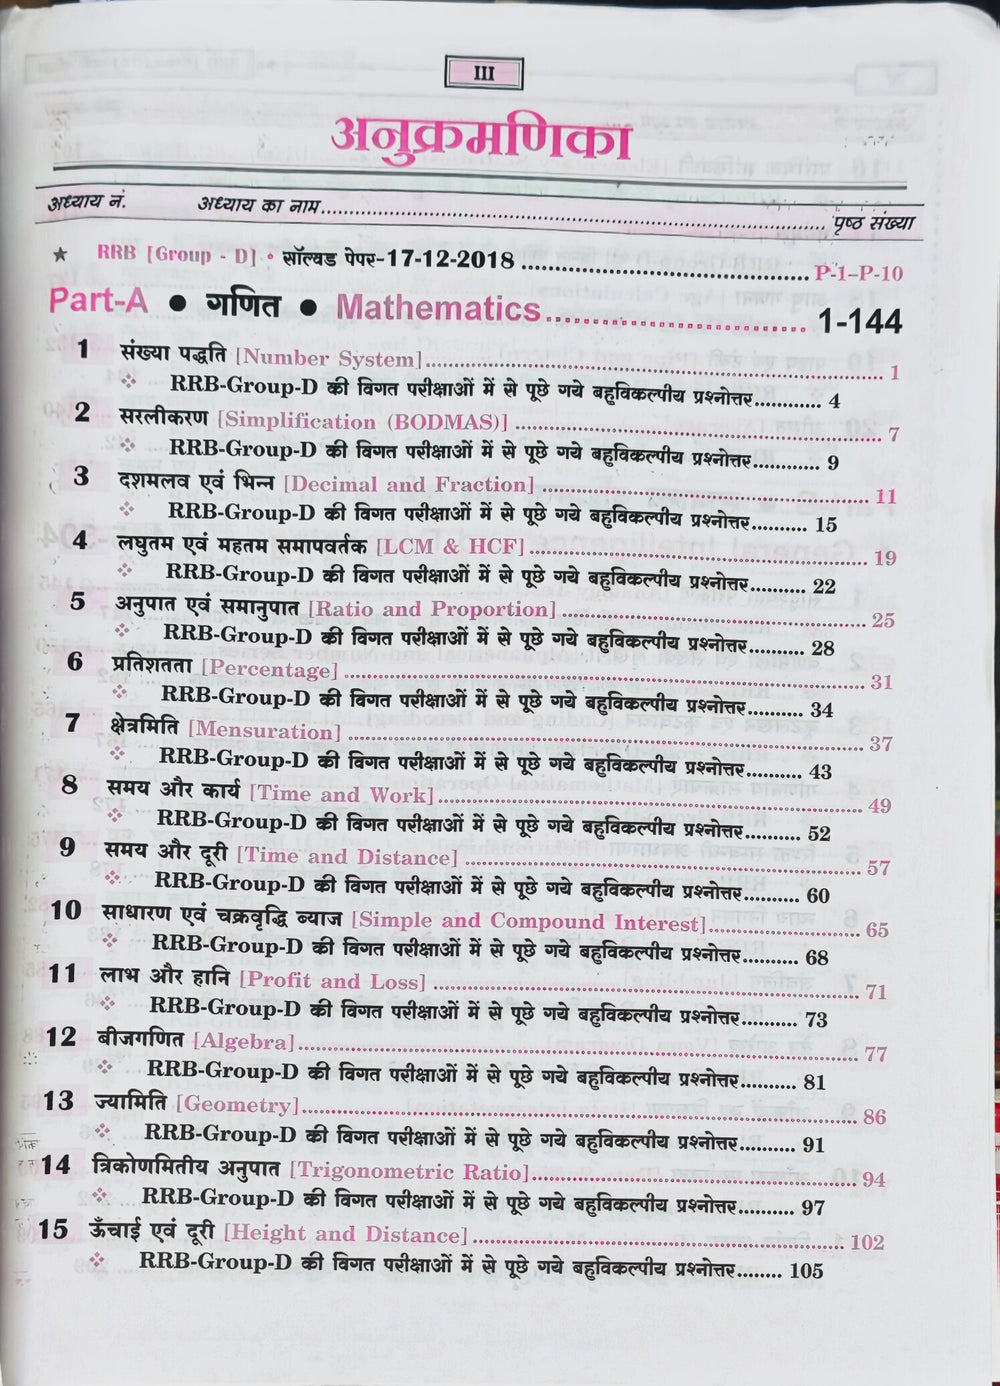 III
अनुक्रमणिका
अध्याय नं. अध्याय का नाम........ पृष्ठ संख्या
★ RRB [Group - D] • सॉल्वड पेपर-17-12-2018........ P-1–P-10
Part-A ● गणित ● Mathematics........ 1-144
1 संख्या पद्धति [Number System]........ 1
❖ RRB-Group-D की विगत परीक्षाओं में से पूछे गये बहुविकल्पीय प्रश्नोत्तर........ 4
2 सरलीकरण [Simplification (BODMAS)]........ 7
❖ RRB-Group-D की विगत परीक्षाओं में से पूछे गये बहुविकल्पीय प्रश्नोत्तर........ 9
3 दशमलव एवं भिन्न [Decimal and Fraction]........ 11
❖ RRB-Group-D की विगत परीक्षाओं में से पूछे गये बहुविकल्पीय प्रश्नोत्तर........ 15
4 लघुतम एवं महतम समापवर्तक [LCM & HCF]........ 19
❖ RRB-Group-D की विगत परीक्षाओं में से पूछे गये बहुविकल्पीय प्रश्नोत्तर........ 22
5 अनुपात एवं समानुपात [Ratio and Proportion]........ 25
❖ RRB-Group-D की विगत परीक्षाओं में से पूछे गये बहुविकल्पीय प्रश्नोत्तर........ 28
6 प्रतिशतता [Percentage]........ 31
❖ RRB-Group-D की विगत परीक्षाओं में से पूछे गये बहुविकल्पीय प्रश्नोत्तर........ 34
7 क्षेत्रमिति [Mensuration]........ 37
❖ RRB-Group-D की विगत परीक्षाओं में से पूछे गये बहुविकल्पीय प्रश्नोत्तर........ 43
8 समय और कार्य [Time and Work]........ 49
❖ RRB-Group-D की विगत परीक्षाओं में से पूछे गये बहुविकल्पीय प्रश्नोत्तर........ 52
9 समय और दूरी [Time and Distance]........ 57
❖ RRB-Group-D की विगत परीक्षाओं में से पूछे गये बहुविकल्पीय प्रश्नोत्तर........ 60
10 साधारण एवं चक्रवृद्धि ब्याज [Simple and Compound Interest]........ 65
❖ RRB-Group-D की विगत परीक्षाओं में से पूछे गये बहुविकल्पीय प्रश्नोत्तर........ 68
11 लाभ और हानि [Profit and Loss]........ 71
❖ RRB-Group-D की विगत परीक्षाओं में से पूछे गये बहुविकल्पीय प्रश्नोत्तर........ 73
12 बीजगणित [Algebra]........ 77
❖ RRB-Group-D की विगत परीक्षाओं में से पूछे गये बहुविकल्पीय प्रश्नोत्तर........ 81
13 ज्यामिति [Geometry]........ 86
❖ RRB-Group-D की विगत परीक्षाओं में से पूछे गये बहुविकल्पीय प्रश्नोत्तर........ 91
14 त्रिकोणमितीय अनुपात [Trigonometric Ratio]........ 94
❖ RRB-Group-D की विगत परीक्षाओं में से पूछे गये बहुविकल्पीय प्रश्नोत्तर........ 97
15 ऊँचाई एवं दूरी [Height and Distance]........ 102
❖ RRB-Group-D की विगत परीक्षाओं में से पूछे गये बहुविकल्पीय प्रश्नोत्तर........ 105